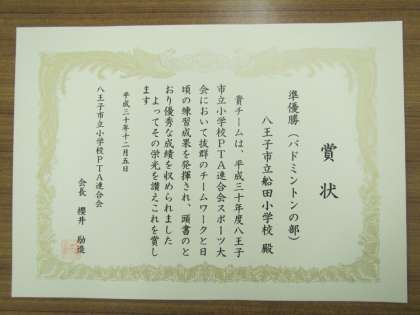 賞状
準優勝（バドミントンの部）
八王子市立船田小学校 殿
貴チームは、平成三十年度八王子
市立小学校ＰＴＡ連合会スポーツ大
会において抜群のチームワークと日
頃の練習成果を発揮され、頭書のと
おり優秀な成績を収められました
よってその栄光を讃えこれを賞し
ます
平成三十年十二月五日
八王子市立小学校ＰＴＡ連合会
会長 櫻井 励造